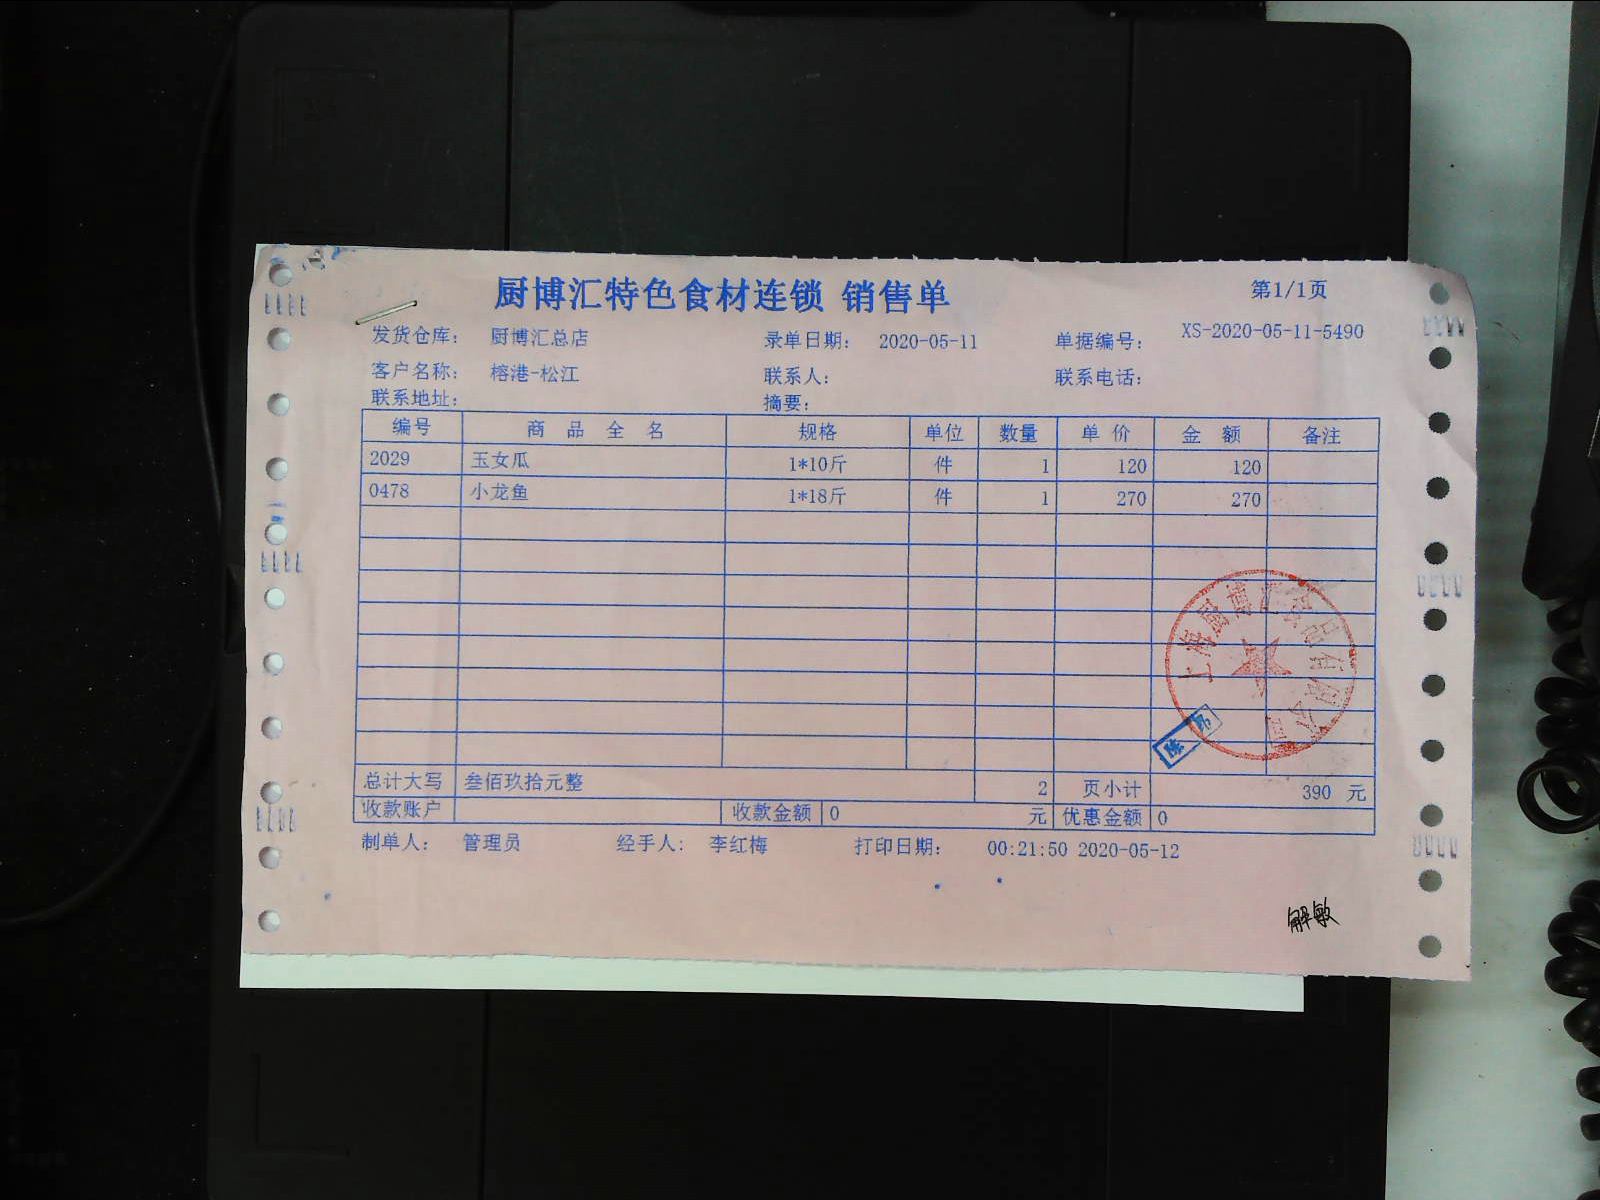 厨博汇特色食材连锁 销售单
第1/1页
发货仓库: 厨博汇总店 录单日期: 2020-05-11 单据编号: XS-2020-05-11-5490
客户名称: 榕港-松江 联系人: 联系电话:
联系地址: 摘要:
编号 商 品 全 名 规格 单位 数量 单 价 金 额 备注
2029 玉女瓜 1*10斤 件 1 120 120
0478 小龙鱼 1*18斤 件 1 270 270
上海厨博汇食品有限公司
总计大写 叁佰玖拾元整 2 页小计 390 元
收款账户 收款金额 0 元 优惠金额 0
制单人: 管理员 经手人: 李红梅 打印日期: 00:21:50 2020-05-12
解敏